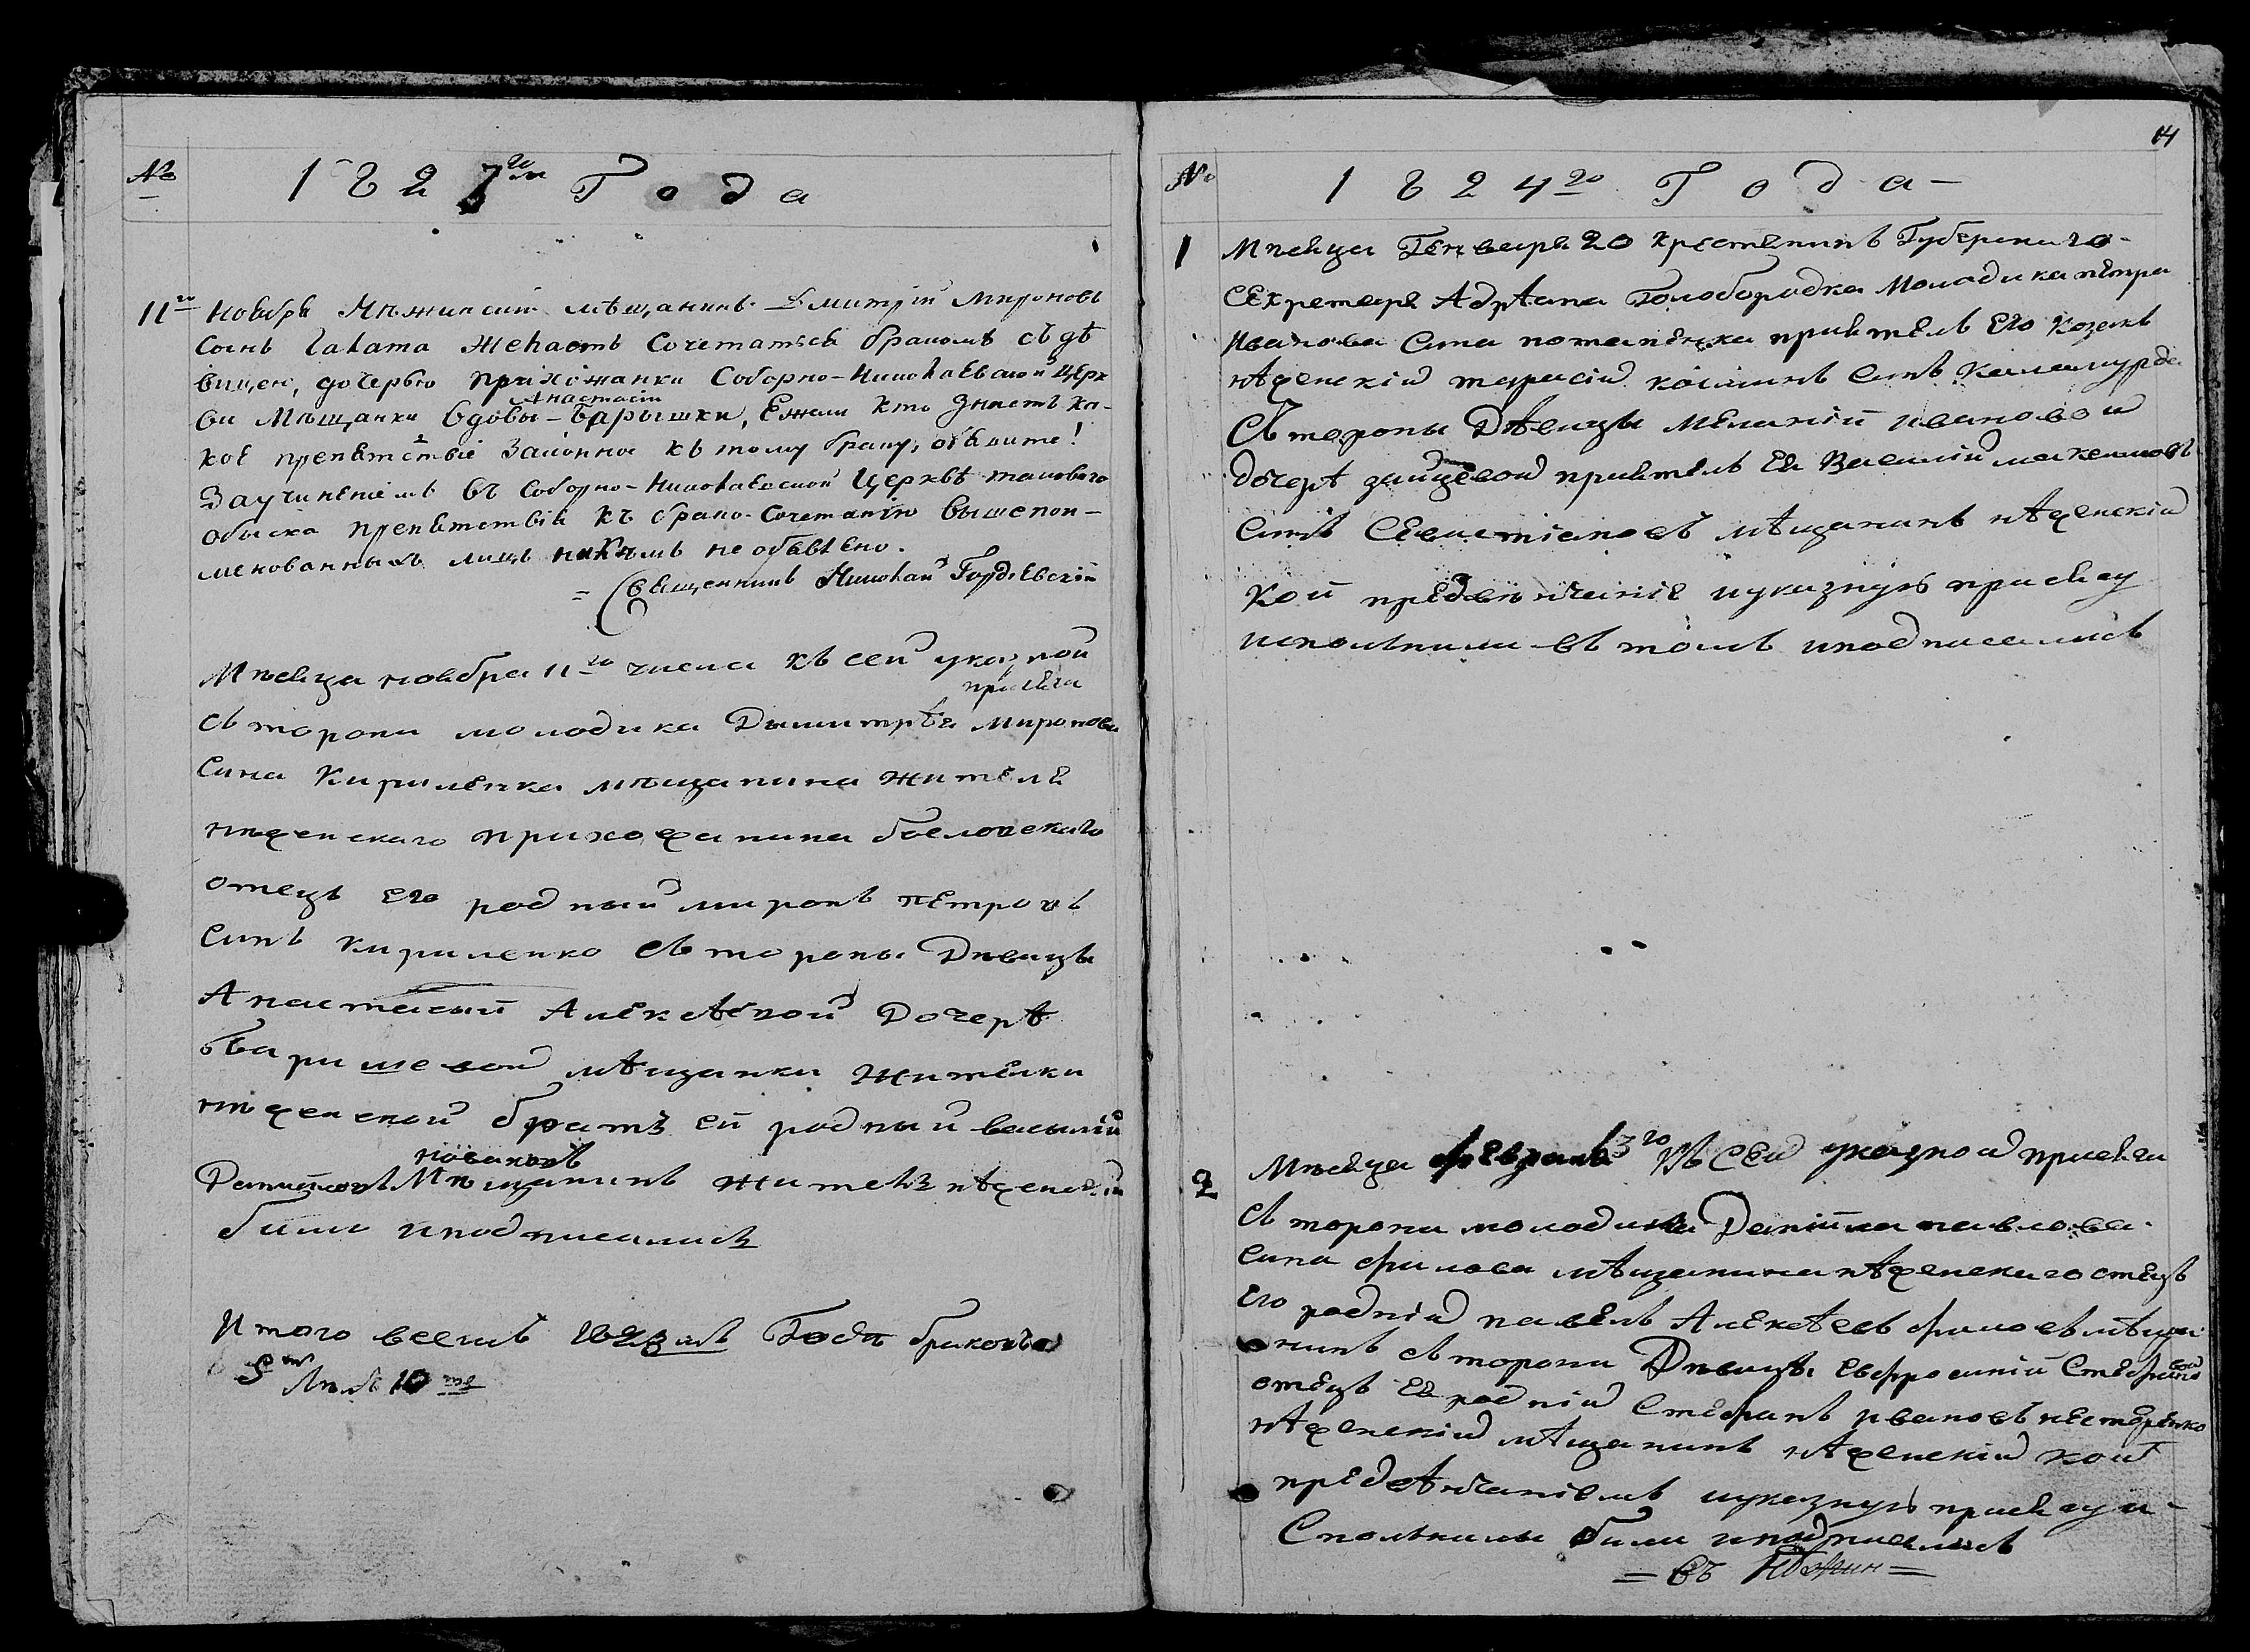 №
182 7го Года
11го Ноября Нѣжинскій мѣщанинъ Димитрій Мироновъ
Сынъ желаетъ Сочетаться бракомъ съ дѣ
вицею, дочерью прихожанки Соборно-Николаевской Церк
Анастасіи
ви Мѣщанки вдовы - Барышки, Ежели кто знаетъ ка-
кое препятствіе Законное къ тому браку, объявите!
За учиненіемъ въ Соборно-Николаевской Церквѣ таковаго
обыска препятствій къ брако-Сочетанію вышепои-
менованныхъ лицъ никѣмъ не объявлено.
= Священникъ Николай Гордіевскій
Мѣсяца ноября 11го числа къ сей указной
присяги
Съ торони молодика Дымитрѣя миронова
Сина Кириленка мѣщанина жителя
нѣженскаго прихожанина
отецъ его родный миронъ петровъ
Синъ Кириленко Съ тороны Дѣвицы
Анастасыи Алексѣевой Дочерѣ
баришевой мѣщанки жителки
нѣженской братъ ей родный василій
новаковъ
Даниловъ Мѣщанинъ житель нѣженскій
были иподписались
Итого всехъ въ Годѣ браковъ
10
14
№
1 8 2 4го Года -
1 Мѣсяца Генваря 20 крестянинъ Губернскаго
СЕкретаря Адрѣана Голобородка Молодика петра
Иванова Сина потапенка приятель Его Козакъ
нѣженскій тарасій Синъ Каламурда
Съ тороны Дѣвицы меланіи ивановой
дочерѣ зайцевой приятель Ея Василій максимовъ
Синъ Севастіановъ мѣщанинъ нѣженскій
Кои предвѣнчаніе иуказную присягу
исполнили въ томъ иподписались
2 Мѣсяца февраля 3го Къ СЕй указной присяги
Съ торони молодика Даніила павлова
Сина филова мѣщанина нѣженскаго отецъ
Его родній павелъ Алексѣевъ филовъ мѣща
нинъ Съ торони Дѣвицы Евфросиніи Стефано
вой
отецъ Ея родній Стефанъ ивановъ нестеренко
нѣженскій мѣщанинъ нѣженскій кои
предвѣнчаніемъ иуказную присягу и-
Сполнили били иподписались
= Въ Нѣжин =